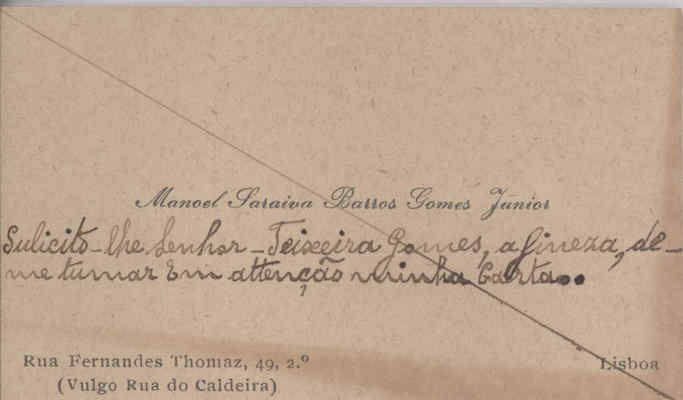 Manoel Saraiva Barros Gomes Júnior
Sulicito-lhe Senhor-Teixeira Gomes, a fineza, de-
me tumar Em attenção minha Carta..
Rua Fernandes Thomaz, 49, 2.º
Lisboa
(Vulgo Rua do Caldeira)